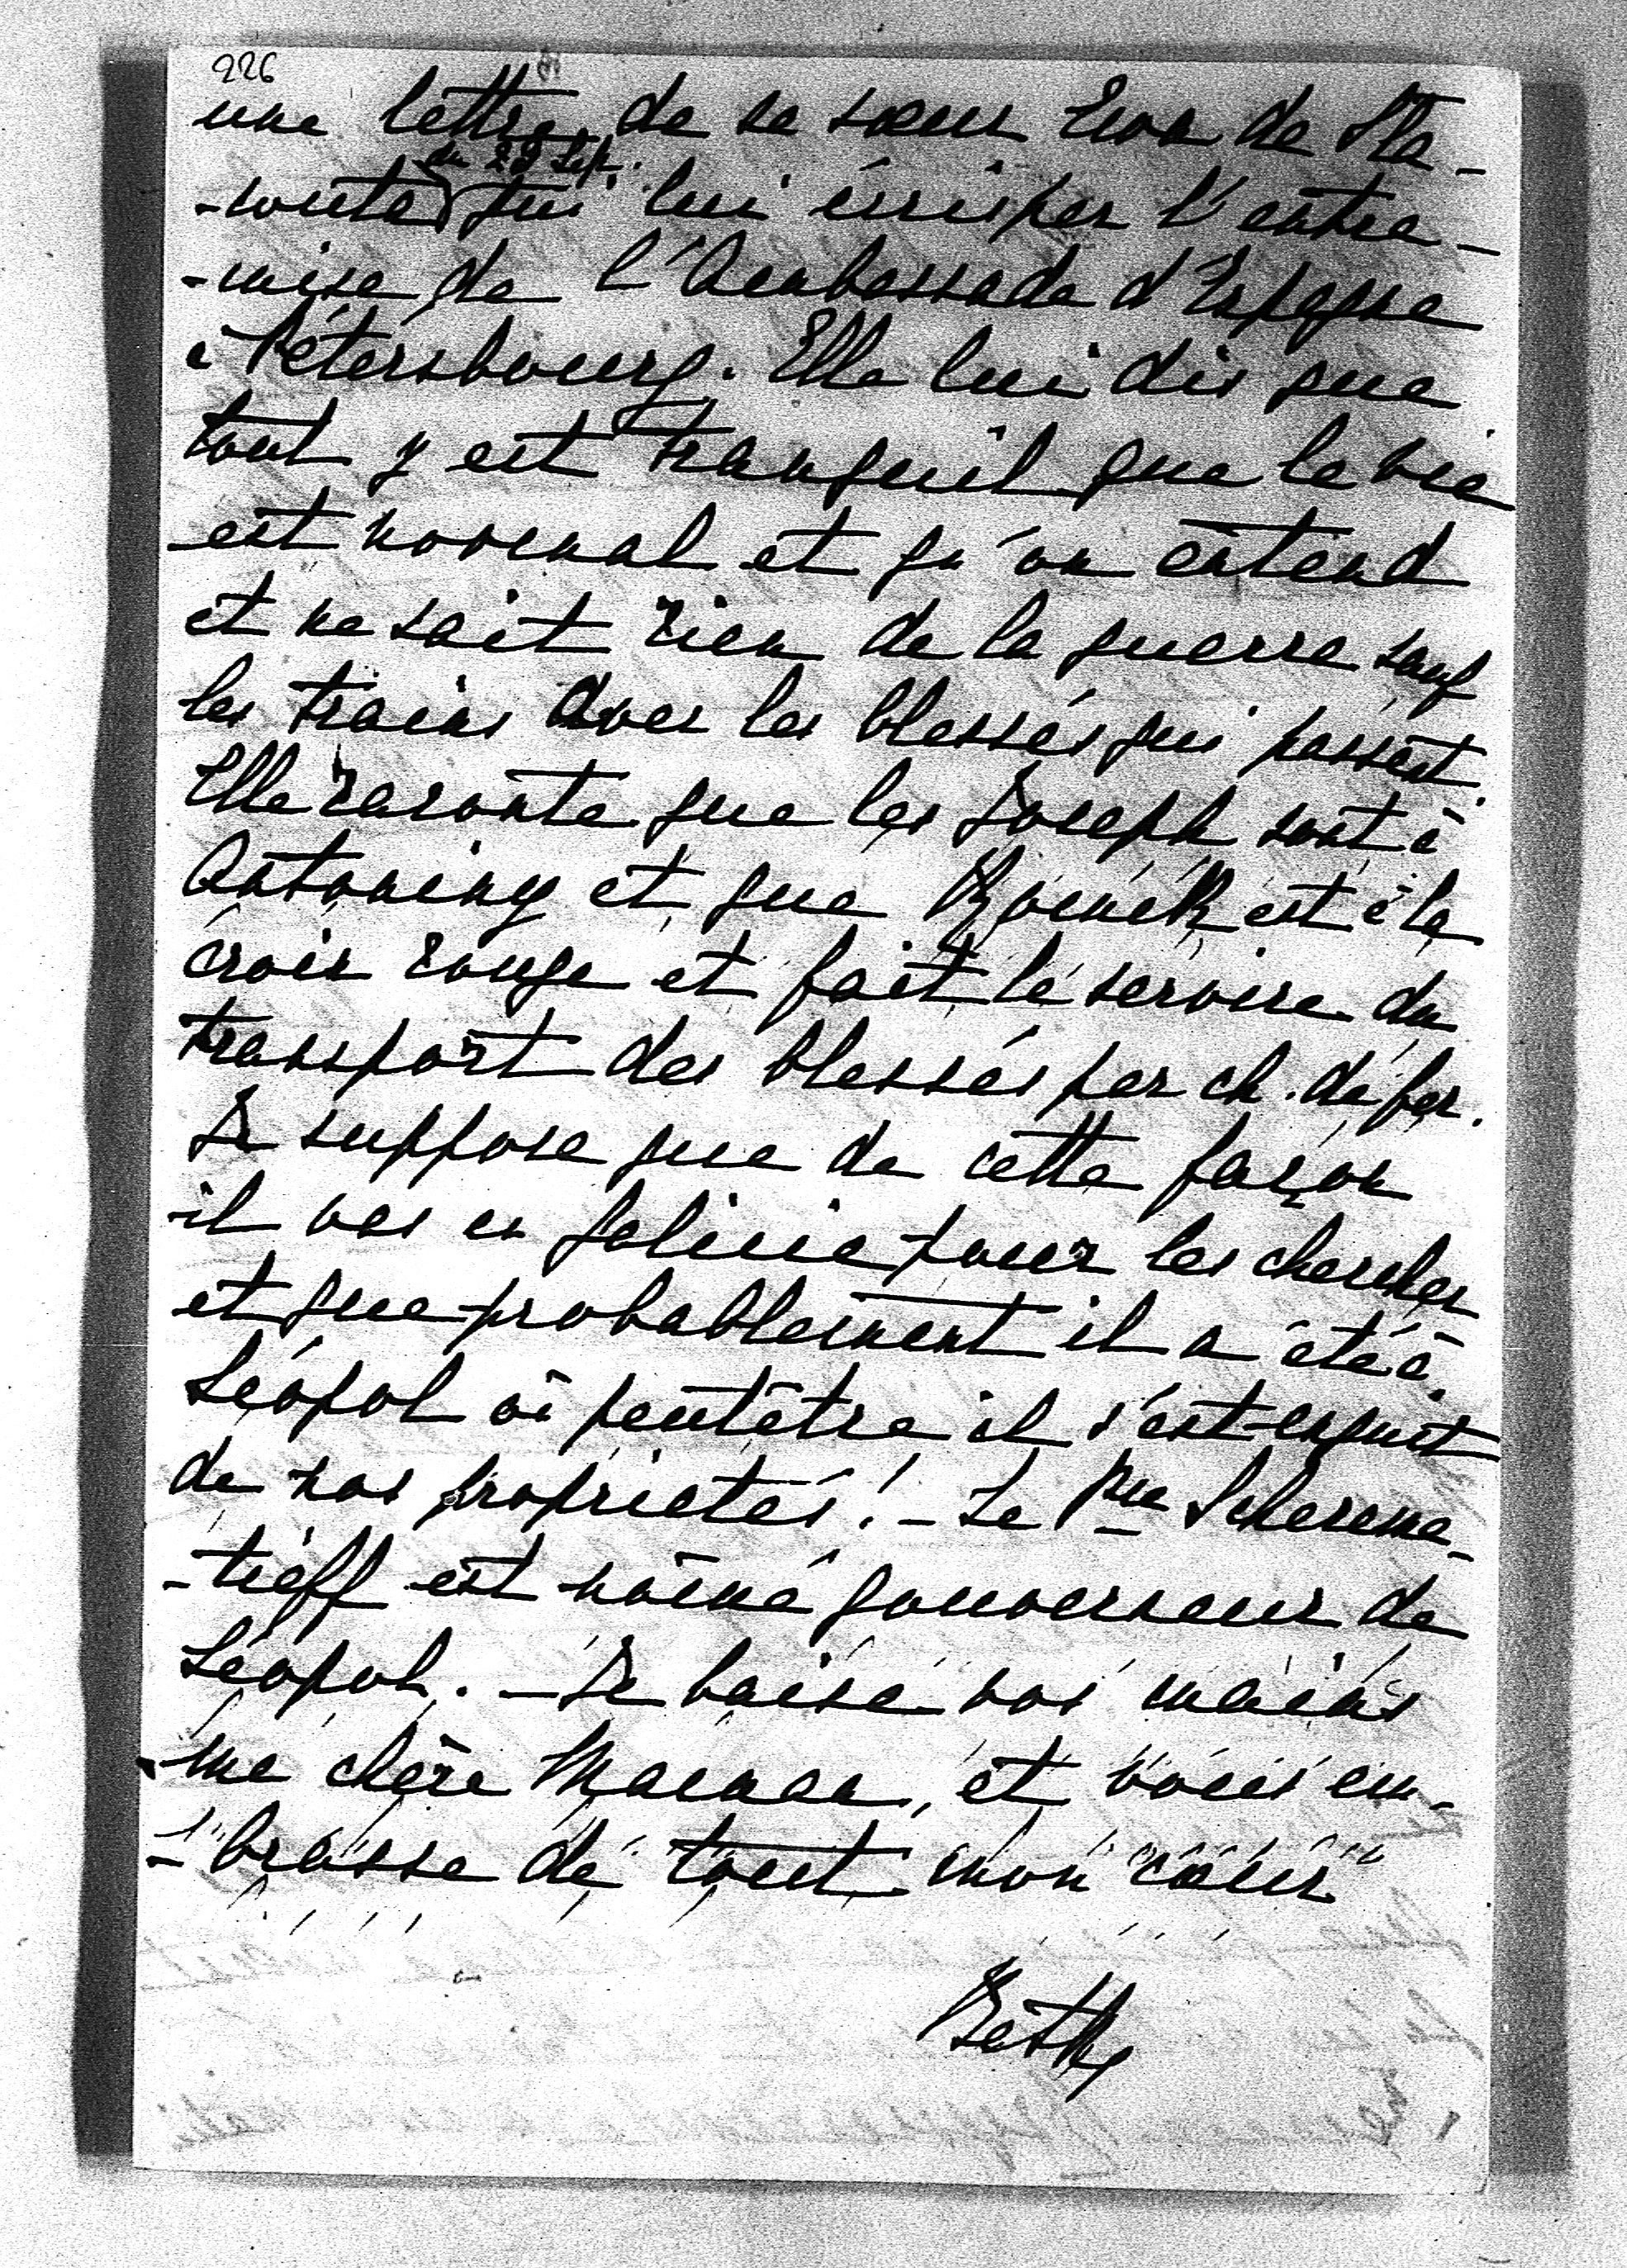 226
une lettre de sa sœur Ewa de Sla-
du 29 Sept.
-wouta qui lui écris par l'entre-
-mise de l'Ambassade d'Espagne
à Pétersbourg. Elle lui dis que
tout y est tranquil que la vie
est normal et qu'on entend
et ne sait rien de la guerre sauf
les trains avec les blessés qui passent.
Elle raconte que les Joseph sont à
Antoniny et que est à la
croix rouge et fait le service du
transport des blessés par ch. de fer.
Je suppose que de cette façon
il vas en Galicie pour les chercher
et que probablement il a été à
Léopol où peutêtre il s'est enquit
de nos propriétés! - Le Pce Schereme-
-tieff est nommé gouverneur de
Léopol. - Je baise vos mains
ma chère Maman, et vous em-
-brasse de tout mon cœur
Bethy